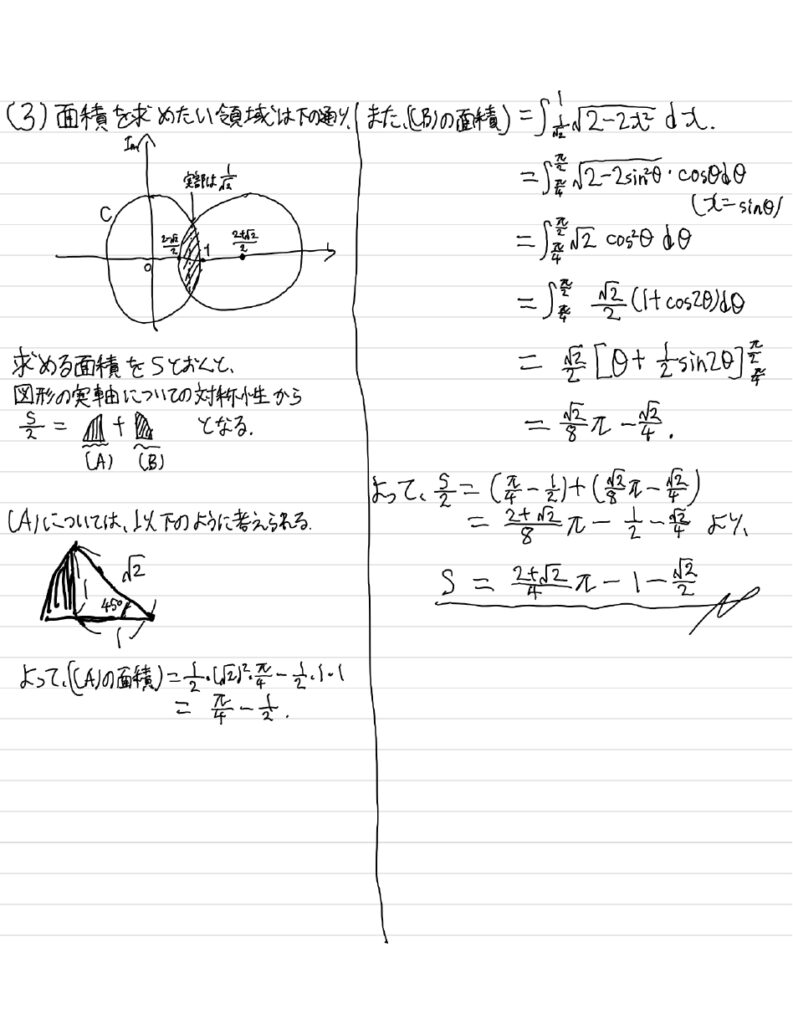 (3) 面積を求めたい領域は下の通り.
Im
実部は 1/√2
C
(2-√2)/2
(2+√2)/2
0
1
求める面積をSとおくと、
図形の実軸についての対称性から
S/2 = + となる.
(A) (B)
(A)については、以下のように考えられる.
√2
1
45°
1
よって、((A)の面積) = 1/2・(√2)²・π/4 - 1/2・1・1
= π/4 - 1/2.
また、((B)の面積) = ∫_{1/√2}^{1} √(2-2x²) dx.
= ∫_{π/4}^{π/2} √(2-2sin²θ)・cosθdθ
(x=sinθ)
= ∫_{π/4}^{π/2} √2 cos²θ dθ
= ∫_{π/4}^{π/2} √2/2 (1+cos2θ)dθ
= √2/2 [θ + 1/2 sin2θ]_{π/4}^{π/2}
= √2/8 π - √2/4.
よって、S/2 = (π/4 - 1/2) + (√2/8 π - √2/4)
= (2+√2)/8 π - 1/2 - √2/4 より、
S = (2+√2)/4 π - 1 - √2/2